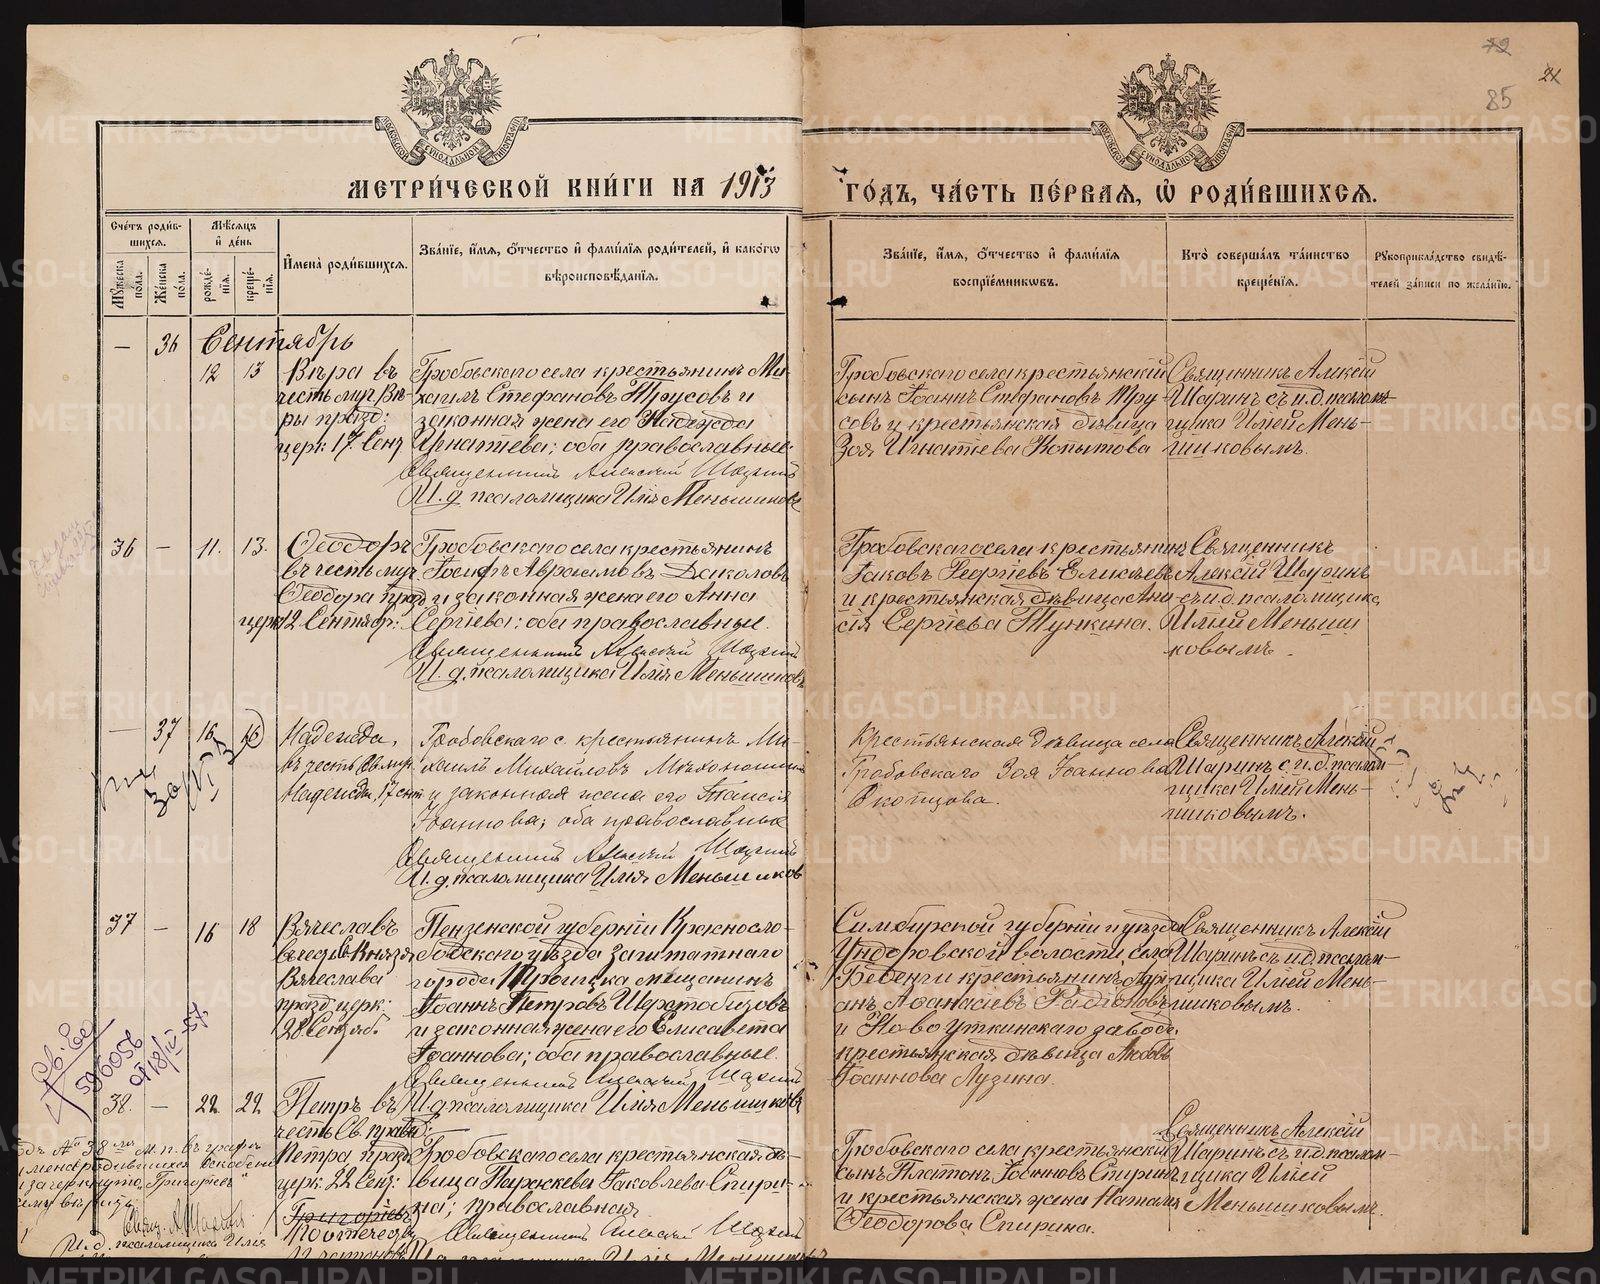 МЕТРИ́ЧЕСКОЙ КНИ́ГИ НА 1913 ГО́ДЪ, ЧА́СТЬ ПЕ́РВАЯ, Ѡ҆ РОДИ́ВШИХСЯ.
85
Сче́тъ роди́вшихся.
Мꙋ́жеска по́ла.
Же́нска по́ла.
Мѣ́сяцъ и҆ де́нь
рожде́нїя.
креще́нїя.
И҆мена̀ роди́вшихся.
Зва́нїе, и҆́мя, ѻ҆́тчество и҆ фами́лїя роди́телей, и҆ како́гѡ вѣроисповѣ́данїя.
Зва́нїе, и҆́мя, ѻ҆́тчество и҆ фами́лїя воспрїе́мникѡвъ.
Кто̀ соверша́лъ та́инство креще́нїя.
Рꙋкоприкла́дство свидѣ́телей за́писи по жела́нїю.
Сентябрь
— 36 12 13
Вѣра въ
честь муч. Вѣ-
ры празд:
церк. 17 Сент
Гробовскаго села крестьянинъ Ми-
хаилъ Стефановъ Трусовъ и
законная жена его Надежда
Игнатьева; оба православные.
Священникъ Алексій Шаринъ
И. д. псаломщика Илія Меньшиковъ
Гробовскаго села крестьянскій
сынъ Іоаннъ Стефановъ Тру-
совъ и крестьянская дѣвица
Зоя Игнатіева Копытова
Священникъ Алексій
Шаринъ съ и.д. псалом-
щика Иліей Мень-
шиковымъ.
36 — 11. 13.
Ѳеодоръ
въ честь муч
Ѳеодора празд
церк 12 Сентябр:
Гробовскаго села крестьянинъ
Іосифъ Аврамовъ
и законная жена его Анна
Сергіева; оба православные.
Священникъ Алексій Шаринъ
И. д. псаломщика Илія Меньшиковъ
Гробовскаго села крестьянинъ
Іаковъ Георгіевъ Елисѣевъ
и крестьянская дѣвица Ани-
сія Сергіева Тункина.
Священникъ
Алексій Шаринъ
съ и.д. псаломщика
Иліей Меньши
ковымъ.
— 37 16 16
Надежда,
въ честь св. муч.
Надежды, 17 сент
Гробовскаго с. крестьянинъ Ми-
хаилъ Михайловъ
и законная жена его Таисія
Іоаннова; оба православные
Священникъ Алексій Шаринъ
И. д. псаломщика Илія Меньшиков
Крестьянская дѣвица села
Гробовскаго Зоя Іоаннова
Скопцова.
Священникъ Алексій
Шаринъ с и.д. псалом-
щика Иліей Мень-
шиковымъ.
37 — 16 18
Вячеславъ
въ честь Князя
Вячеслава
празд. церк:
28 Сентяб.
Пензенской губерніи Краснослo-
бодскаго уѣзда заштатнаго
города Троицка мѣщанинъ
Іоаннъ Петровъ Шератобизовъ
и законная жена его Елисавета
Іоаннова; оба православные.
Священникъ Алексій Шаринъ
И.д псаломщика Илія Меньшиковъ
Симбирской губерніи и уѣзда
Ундоровской волости села
Беденги крестьянинъ
Аѳанасіевъ Радіоновъ
и Ново Уткинскаго завода
крестьянская дѣвица Любовь
Іоаннова Лузина.
Священникъ Алексій
Шаринъ съ и.д. псалом-
щика Иліей Мень-
шиковымъ.
596056
38. — 22 22
Петръ въ
честь Св. прав
Петра празд
церк. 22 Сент:
Григорьевъ
По отчеству
Платоновъ
Гробовскаго села крестьянская дѣ-
вица Параскева Іаковлева Спири-
на; православная.
Священникъ Алексій Шаринъ
И.д. псаломщика Илія Меньшиковъ
Гробовскаго села крестьянскій
сынъ Платонъ Іоанновъ Спиринъ
и крестьянская жена Наталія
Ѳеодорова Спирина.
Священникъ Алексій
Шаринъ съ и.д. псалом-
щика Иліей
Меньшиковымъ.
38 м. п. въ графѣ
имена родившихся
зачеркнуто „Григорьевъ“
Свящ. А. Шаринъ
И. д. псаломщика Илія
METRIKI.GASO-URAL.RU